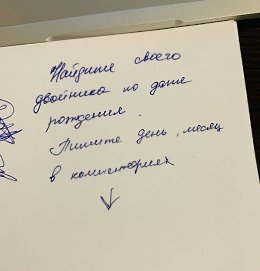 Найдите своего
двойника по дате
рождения.
Пишите день, месяц
в комментариях